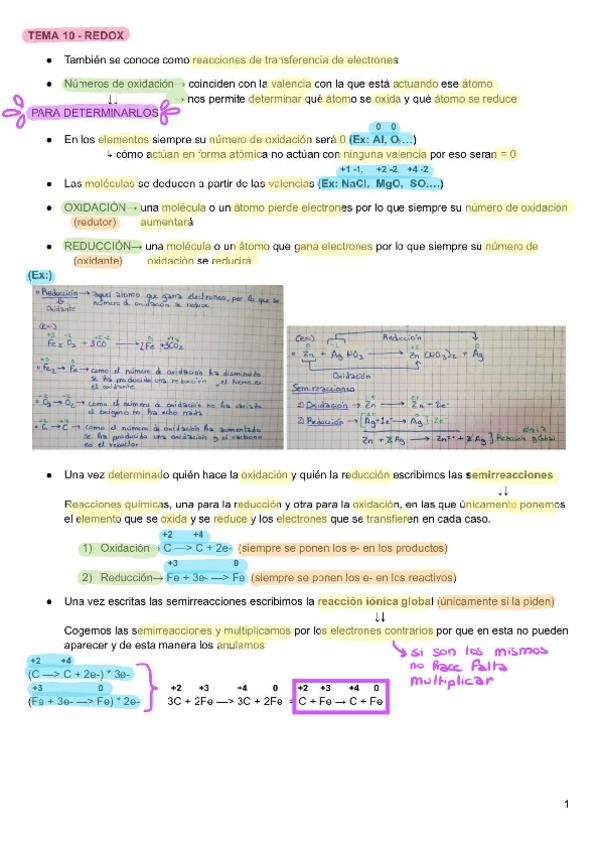 TEMA 10 - REDOX
● También se conoce como reacciones de transferencia de electrones
● Números de oxidación → coinciden con la valencia con la que está actuando ese átomo
↓↓ → nos permite determinar qué átomo se oxida y qué átomo se reduce
PARA DETERMINARLOS
0 0
● En los elementos siempre su número de oxidación será 0 (Ex: Al, O...)
↳ cómo actúan en forma atómica no actúan con ninguna valencia por eso seran = 0
+1 -1, +2 -2, +4 -2
● Las moléculas se deducen a partir de las valencias (Ex: NaCl, MgO, SO....)
● OXIDACIÓN → una molécula o un átomo pierde electrones por lo que siempre su número de oxidación
(redutor) aumentará
● REDUCCIÓN→ una molécula o un átomo que gana electrones por lo que siempre su número de
(oxidante) oxidación se reducirá
(Ex:)
Reducción → aquel átomo que gana electrones, por lo que su
número de oxidación se reduce
Oxidante
(ex:)
+3 -2 +2 -2 0 +4 -2
Fe2 O3 + 3CO → 2Fe + 3CO2
como el número de oxidación ha disminuido
se ha producido una reducción, el hierro es
el oxidante
O3 → O2 → como el número de oxidación no ha variado
el oxígeno no ha echo nada
C → C → como el número de oxidación ha aumentado
se ha producido una oxidación y el carbono
es el reductor
(ex:) Reducción
Zn + Ag NO3 → Zn (NO3)2 + Ag
Oxidación
Semirreacciones
1) Oxidación → Zn → Zn + 2e-
2) Reducción → [Ag + 1e- → Ag] · 2e-
Zn + 2Ag → Zn2+ + 2Ag
● Una vez determinado quién hace la oxidación y quién la reducción escribimos las semirreacciones
↓↓
Reacciones químicas, una para la reducción y otra para la oxidación, en las que únicamente ponemos
el elemento que se oxida y se reduce y los electrones que se transfieren en cada caso.
+2 +4
1) Oxidación→ C —> C + 2e- (siempre se ponen los e- en los productos)
+3 0
2) Reducción→ Fe + 3e- —> Fe (siempre se ponen los e- en los reactivos)
● Una vez escritas las semirreacciones escribimos la reacción iónica global (únicamente si la piden)
↓↓
Cogemos las semirreacciones y multiplicamos por los electrones contrarios por que en esta no pueden
aparecer y de esta manera los anulamos
si son los mismos
no hace falta
multiplicar
+2 +4
(C —> C + 2e-) * 3e-
+3 0
(Fe + 3e- —> Fe) * 2e-
+2 +3 +4 0 +2 +3 +4 0
3C + 2Fe —> 3C + 2Fe = C + Fe → C + Fe
1